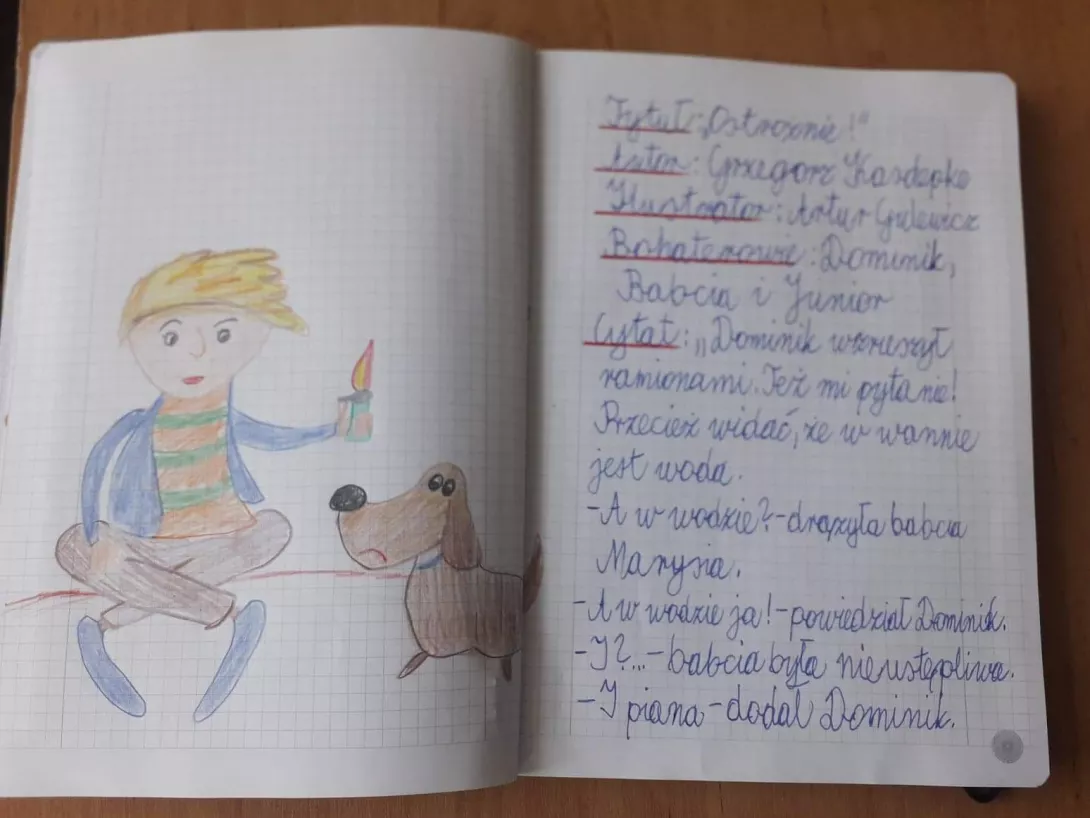 Tytuł: „Ostrożnie!"
Autor: Grzegorz Kasdepke
Ilustrator: Artur Gulewicz
Bohaterowie: Dominik,
Babcia i Junior
Cytat: „Dominik wzruszył
ramionami. Też mi pytanie!
Przecież widać, że w wannie
jest woda.
-A w wodzie?-drążyła babcia
Marysia.
-A w wodzie ja!-powiedział Dominik.
-I?...-babcia była nieustępliwa.
-I piana-dodał Dominik.